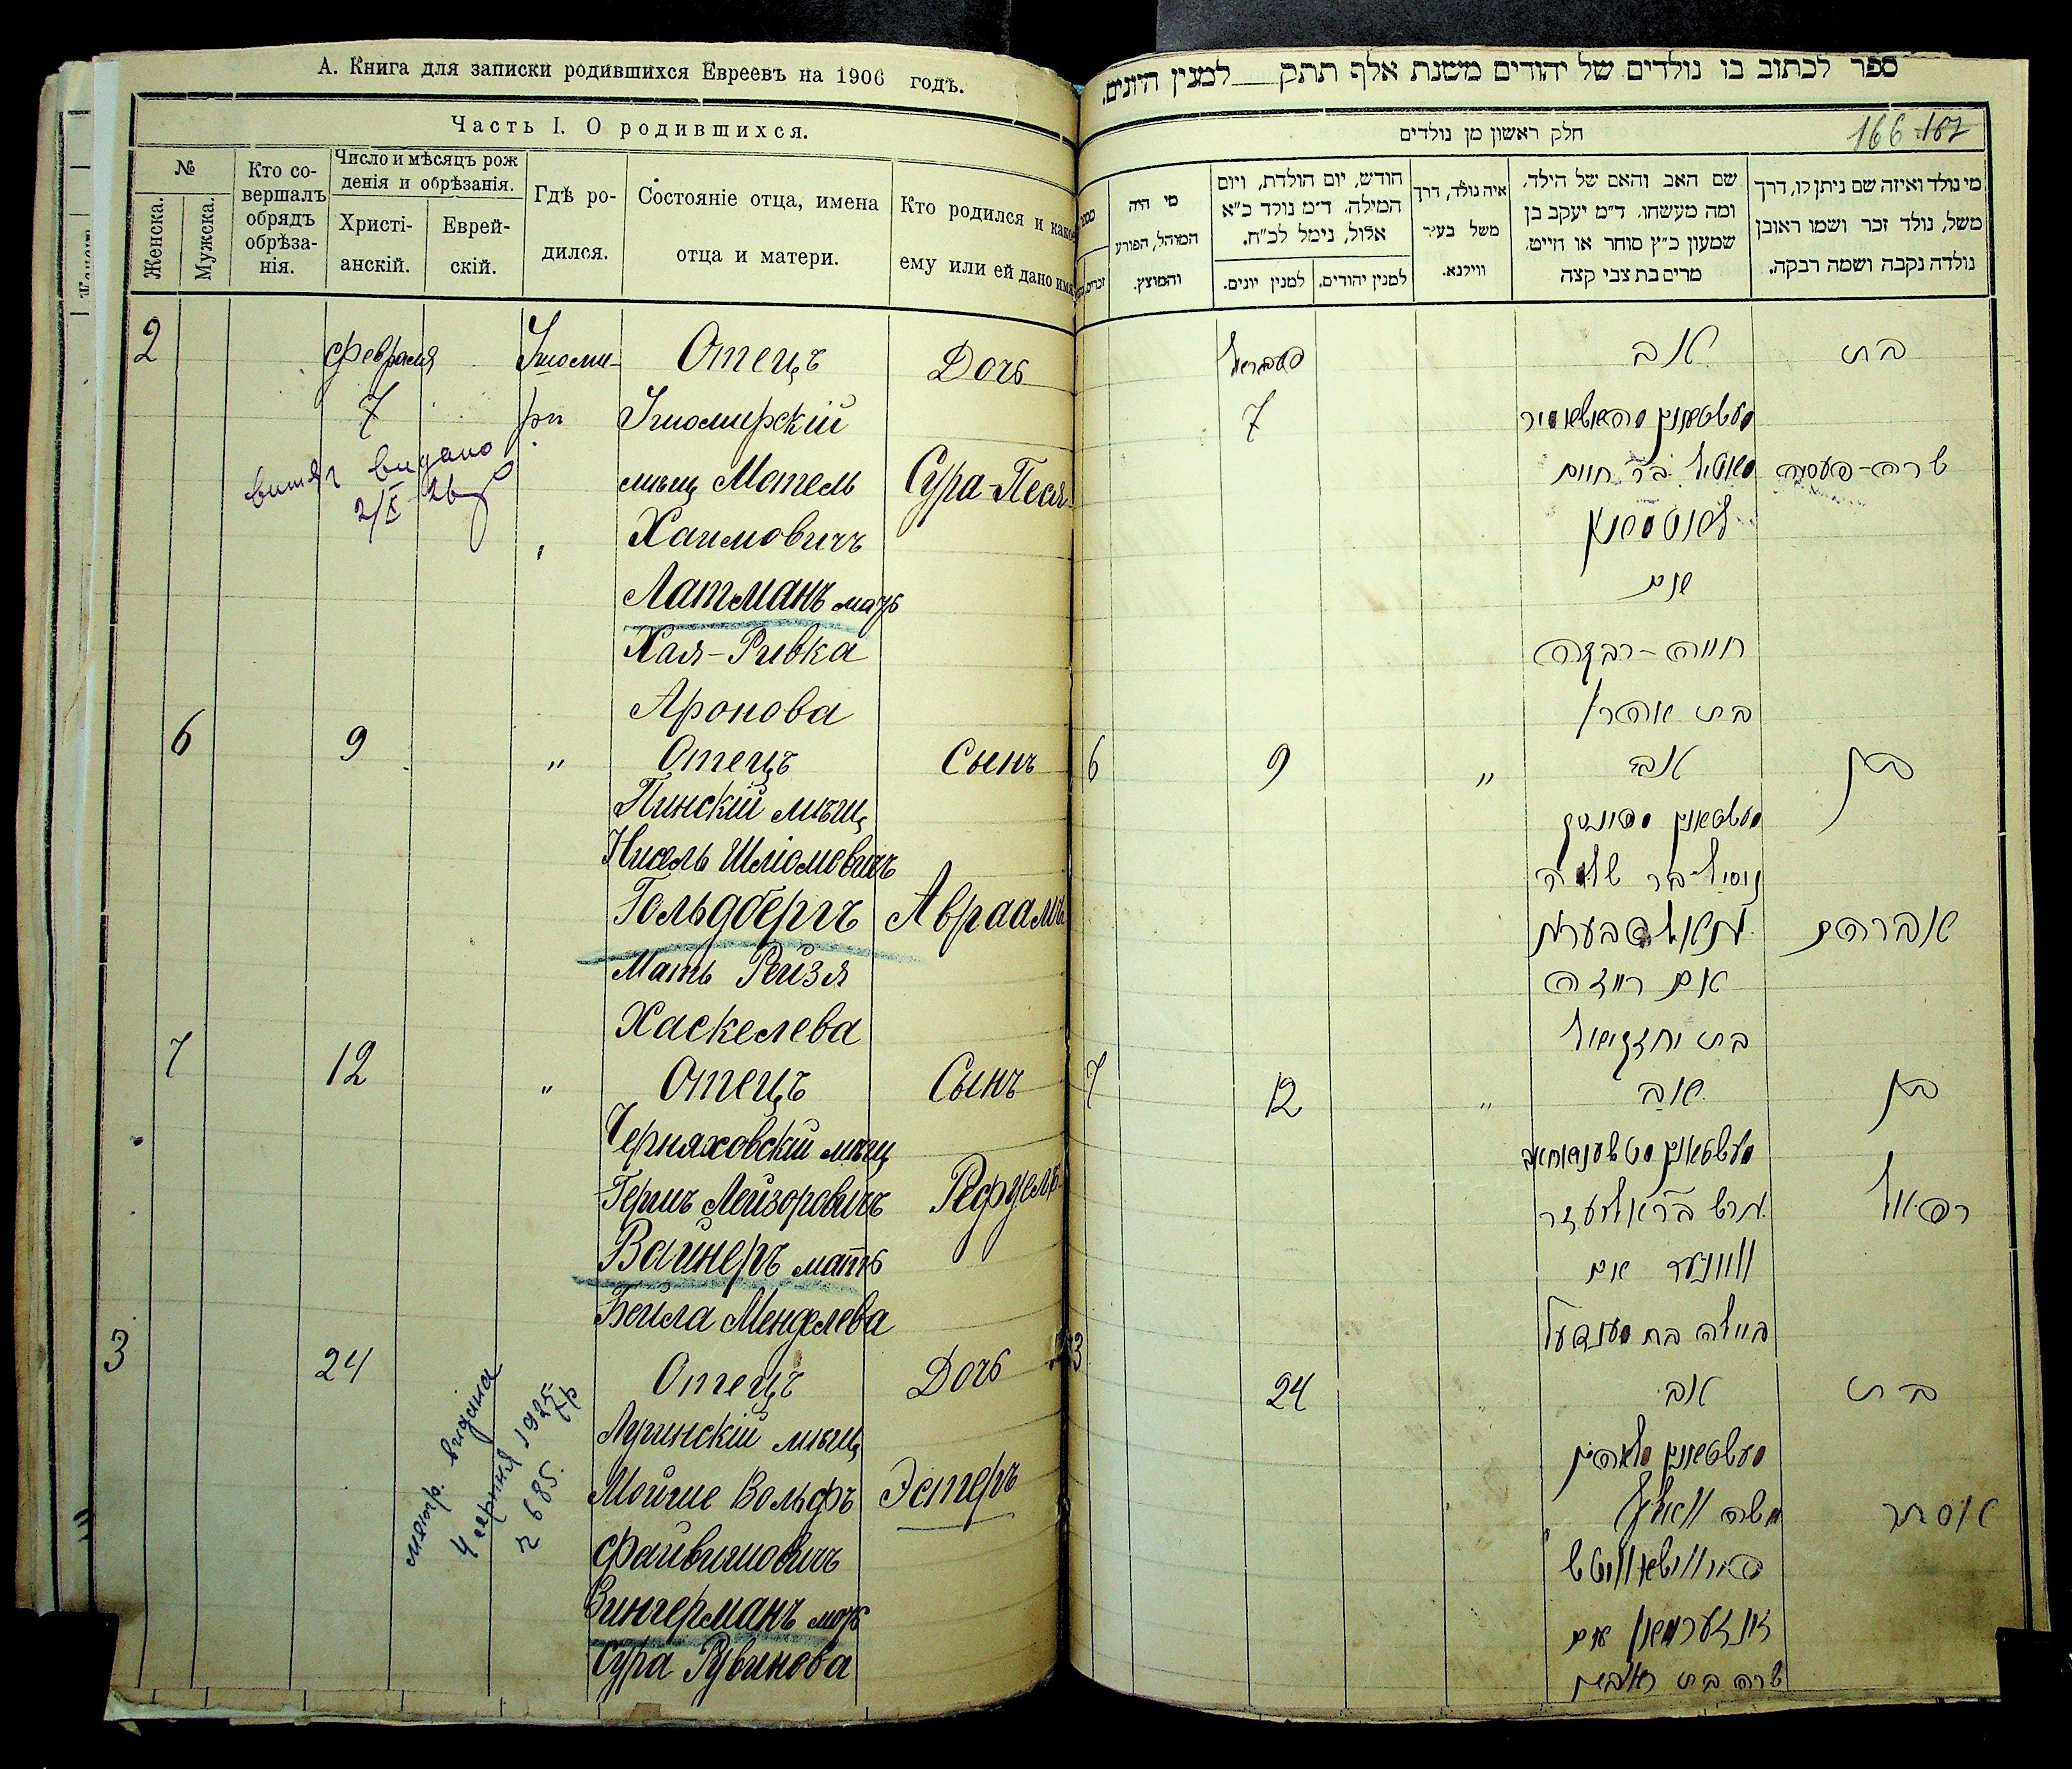 А. Книга для записки родившихся Евреевъ на 1906 годъ.
Часть I. О родившихся.
№
Женска.
Мужска.
Кто со-
вершалъ
обрядъ
обрѣза-
нія.
Число и мѣсяцъ рож
денія и обрѣзанія.
Христі-
анскій.
Еврей-
скій.
Гдѣ ро-
дился.
Состояніе отца, имена
отца и матери.
Кто родился и какое
ему или ей дано имя
2 февраля Отецъ Дочь
7
мѣщ Мотель Сура-Песя
Хаимовичъ
Латманъ мать
Хая-Ривка
Аронова
6 9 " Отецъ Сынъ
Пинскій мѣщ
Нисель Шліомовичъ
Гольдбергъ Авраамъ
Мать Рейзя
Хаскелева
7 12 " Отецъ Сынъ
Черняховскій мѣщ
Гершъ Лейзоровичъ
Вайнеръ мать
Бейла Менделева
3 24 Отецъ Дочь
Лугинскій мѣщ
Мойше Вольфъ Эстеръ
Файвишовичъ
Зингерманъ мать
Сура Рувинова
витяг видано
метр. видана
4 серпня 1925 р
685
ספר לכתוב בו נולדים של יהודים משנת אלף תתק למנין היונים.
חלק ראשון מן נולדים
166 167
מי נולד ואיזה שם ניתן לו, דרך
משל, נולד זכר ושמו ראובן
נולדה נקבה ושמה רבקה.
שם האב והאם של הילד,
ומה מעשהו, ד״מ יעקב בן
שמעון כ״ץ סוחר או חייט,
מרים בת צבי קצה
איה נולד, דרך
משל בעיר
ווילנא.
חודש, יום הולדת, ויום
המילה. ד״מ נולד כ״א
אלול, נימל לכ״ח.
למנין יהודים.
למנין יונים.
מי היה
המוהל, הפורע
והמוצץ.
בת אב
7
שרה-פעסיה מאטיל בר חיים
לאטמאן
אם
חייה-רבקה
בת אהרן
בן אב " 9 6
ניסיל בר שלמה
אברהם גאלדבערג
אם רייזה
בת יחזקיאל
בן אב " 12 7
רפאל הרש בר אליעזר
ווינער אם
ביילה בת מענדעל
בת אב 24 3
אסתר משה וואלף
זינגערמאן אם
שרה בת ראובין